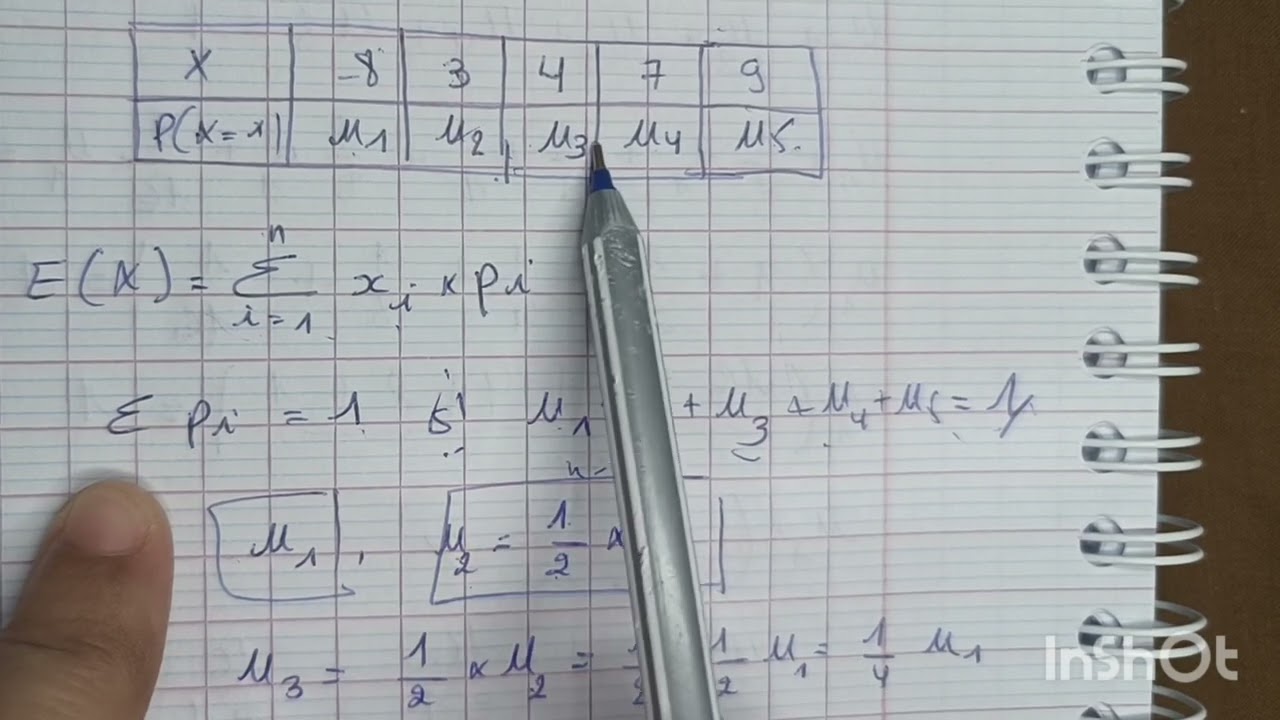 X -8 3 4 7 9
P(X=x) u1 u2 u3 u4 u5
E(X) = n Σ i=1 xi × pi
Σ pi = 1 u1 + u3 + u4 + u5 = 1
u1, u2 = 1/2 ×
u3 = 1/2 × u2 = 1/2 u1 = 1/4 u1
InshOt